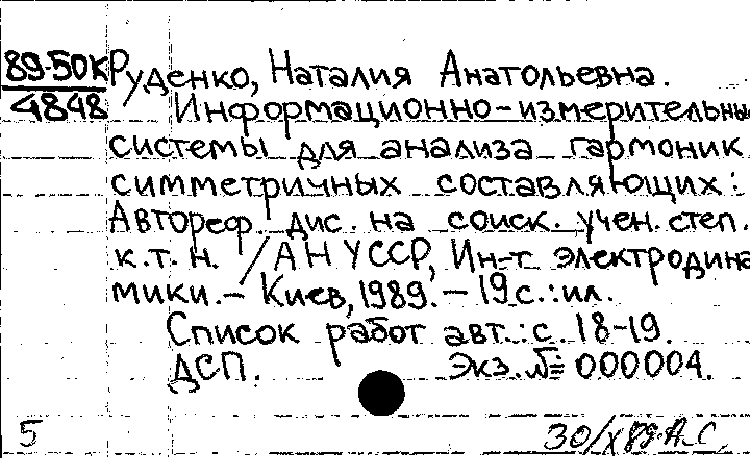 89-50К Руденко, Наталия Анатольевна.
4848 Информационно-измерительные
системы для анализа гармоник
симметричных составляющих:
Автореф. дис. на соиск. учен. степ.
к.т.н. / АН УССР, Ин-т электродина
мики. – Киев, 1989. – 19 с.: ил.
Список работ авт.: с. 18-19.
ДСП. Экз. № 000004.
5 30/X 89. А.С.